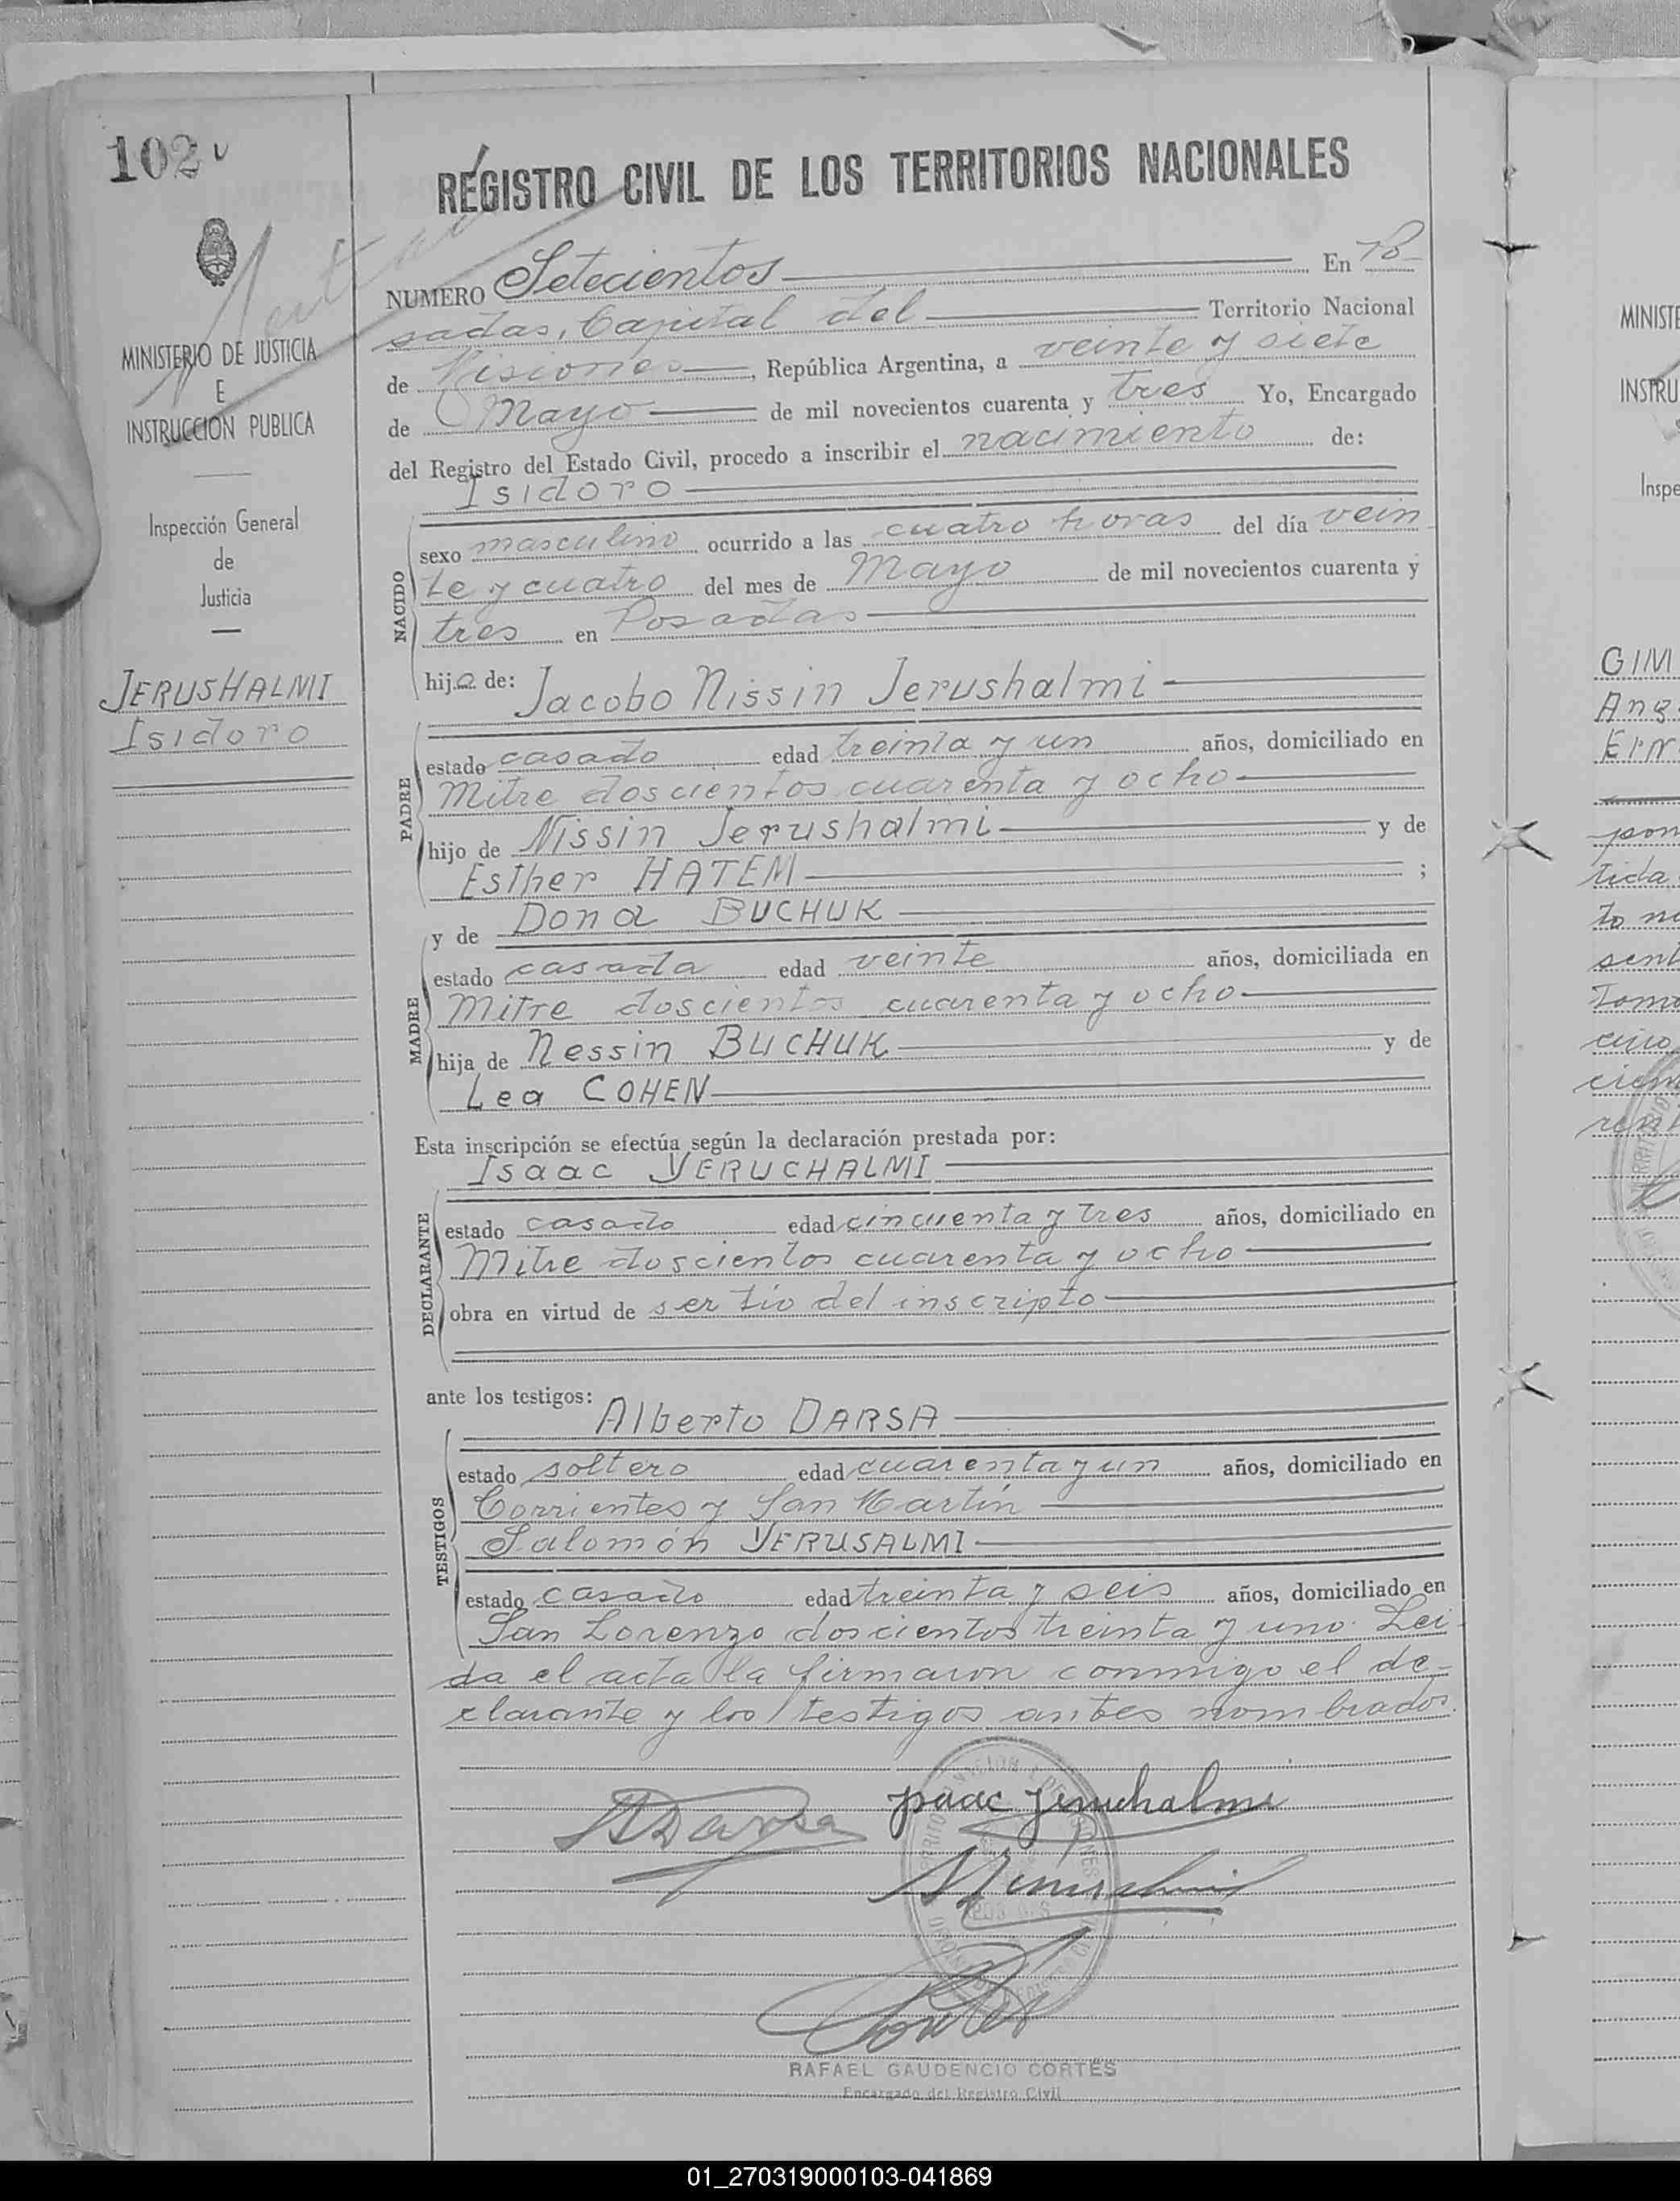 102
REGISTRO CIVIL DE LOS TERRITORIOS NACIONALES
MINISTERIO DE JUSTICIA
E
INSTRUCCION PUBLICA
Inspección General
de
Justicia
JERUSHALMI
Isidoro
NUMERO Setecientos En Po-
sadas, Capital del Territorio Nacional
de Misiones, República Argentina, a veinte y siete
de Mayo de mil novecientos cuarenta y tres Yo, Encargado
del Registro del Estado Civil, procedo a inscribir el nacimiento de:
Isidoro
NACIDO
sexo masculino ocurrido a las cuatro horas del día vein
te y cuatro del mes de Mayo de mil novecientos cuarenta y
tres en Posadas
hijo de: Jacobo Nissin Jerushalmi
PADRE
estado casado edad treinta y un años, domiciliado en
Mitre doscientos cuarenta y ocho
hijo de Nissin Jerushalmi y de
Esther HATEM ;
y de Dona BUCHUK
MADRE
estado casada edad veinte años, domiciliada en
Mitre doscientos cuarenta y ocho
hija de Nessin BUCHUK y de
Lea COHEN
Esta inscripción se efectúa según la declaración prestada por:
Isaac YERUCHALMI
DECLARANTE
estado casado edad cincuenta y tres años, domiciliado en
Mitre doscientos cuarenta y ocho
obra en virtud de ser tío del inscripto
ante los testigos:
Alberto DARSA
TESTIGOS
estado soltero edad cuarenta y un años, domiciliado en
Corrientes y San Martín
Salomón YERUSALMI
estado casado edad treinta y seis años, domiciliado en
San Lorenzo doscientos treinta y uno. Lei
da el acta la firmaron conmigo el de-
clarante y los testigos antes nombrados.
ADarsa
Isaac Jeruchalmi
RAFAEL GAUDENCIO CORTÉS
Encargado del Registro Civil
MINISTE
INSTRU
Inspe
GIM
Ang
tida
to
sent
Toma
01_270319000103-041869